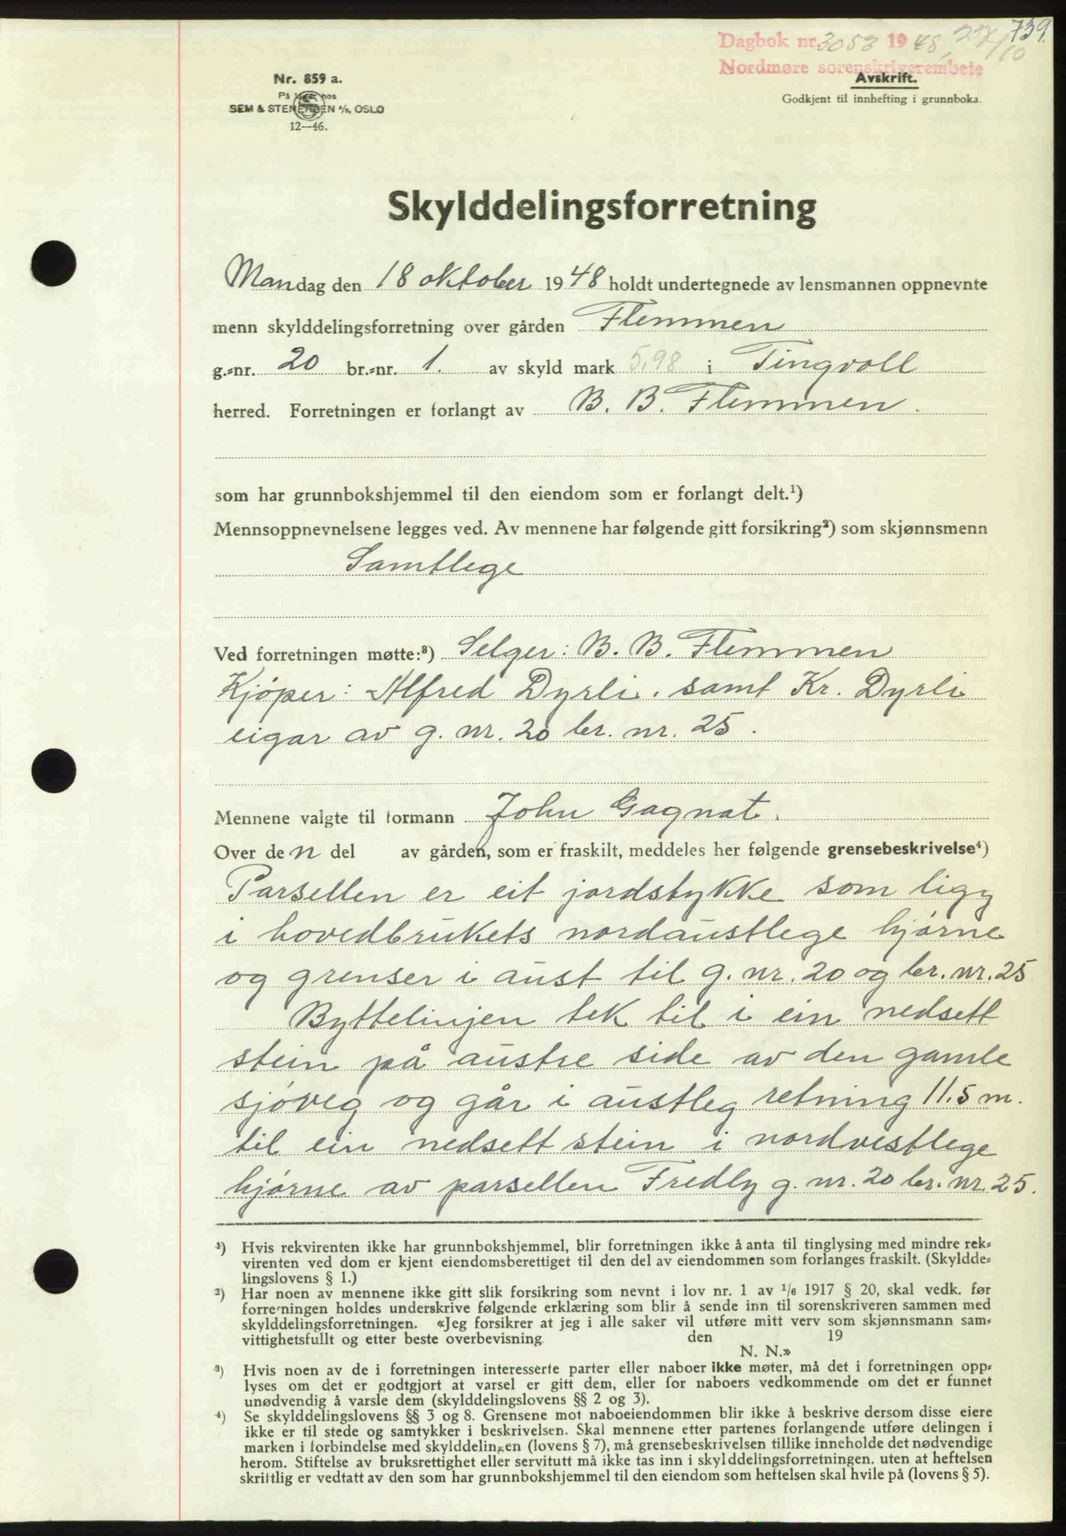 739.
Dagbok nr. 3053 19 48, 22/10
Nordmøre sorenskriverembete
Nr. 859 a.
På lager hos
SEM & STENERSEN A/S, OSLO
12—46.
Avskrift.
Godkjent til innhefting i grunnboka.
Skylddelingsforretning
Mandag den 18 oktober 1948 holdt undertegnede av lensmannen oppnevnte
menn skylddelingsforretning over gården Flemmen
g.-nr. 20 br.-nr. 1. av skyld mark 5,98 i Tingvoll
herred. Forretningen er forlangt av B. B. Flemmen.
som har grunnbokshjemmel til den eiendom som er forlangt delt.¹)
Mennsoppnevnelsene legges ved. Av mennene har følgende gitt forsikring²) som skjønnsmenn
Samtlege
Ved forretningen møtte:³) Selger: B. B. Flemmen
Kjøper: Alfred Dyrli, samt Kr. Dyrli
eigar av g. nr. 20 br. nr. 25.
Mennene valgte til formann John Gagnat.
Over den del av gården, som er fraskilt, meddeles her følgende grensebeskrivelse⁴)
Parsellen er eit jordstykke som ligg
i hovedbrukets nordaustlege hjørne
og grenser i aust til g. nr. 20 og br. nr. 25
Byttelinjen tek til i ein nedsett
stein på austre side av den gamle
sjøveg og går i austleg retning 11,5 m.
til ein nedsett stein i nordvestlege
hjørne av parsellen Fredly g. nr. 20 br. nr. 25.
¹) Hvis rekvirenten ikke har grunnbokshjemmel, blir forretningen ikke å anta til tinglysing med mindre rek-
virenten ved dom er kjent eiendomsberettiget til den del av eiendommen som forlanges fraskilt. (Skyldde-
lingslovens § 1.)
²) Har noen av mennene ikke gitt slik forsikring som nevnt i lov nr. 1 av 1/6 1917 § 20, skal vedk. før
forretningen holdes underskrive følgende erklæring som blir å sende inn til sorenskriveren sammen med
skylddelingsforretningen. «Jeg forsikrer at jeg i alle saker vil utføre mitt verv som skjønnsmann sam-
vittighetsfullt og etter beste overbevisning. den 19
N. N.»
³) Hvis noen av de i forretningen interesserte parter eller naboer ikke møter, må det i forretningen opp-
lyses om det er godtgjort at varsel er gitt dem, eller for naboers vedkommende om det er funnet
unødvendig å varsle dem (skylddelingslovens §§ 2 og 3).
⁴) Se skylddelingslovens §§ 3 og 8. Grensene mot naboeiendommen blir ikke å beskrive dersom disse eiere
ikke er til stede og samtykker i beskrivelsen. Skal mennene etter partenes forlangende utføre delingen i
marken i forbindelse med skylddelingen (lovens § 7), må grensebeskrivelsen tillike inneholde det nødvendige
herom. Stiftelse av bruksrettighet eller servitutt må ikke tas inn i skylddelingsforretningen, uten at heftelsen
skriftlig er vedtatt av den som har grunnbokshjemmel til den eiendom som heftelsen skal hvile på (lovens § 5).